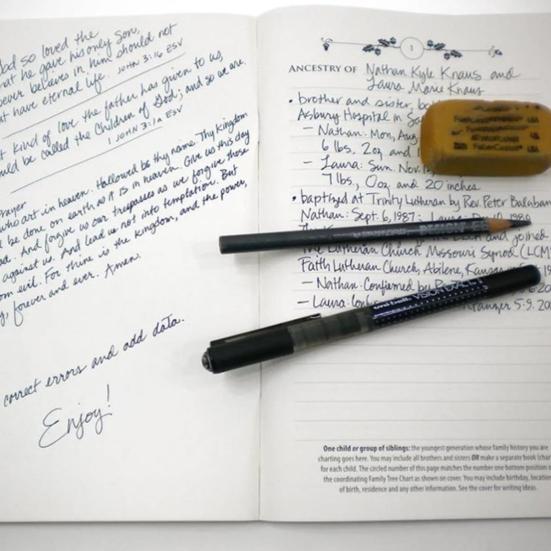 so loved the
he gave his only Son,
believes in him should not
have eternal life. JOHN 3:16 ESV
kind of love the father has given to us,
be called the Children of God; and so we are.
1 JOHN 3:1A ESV
who art in heaven. Hallowed be thy name. Thy Kingdom
be done on earth as it is in heaven. Give us this day
And forgive us our trespasses as we forgive those
against us. And lead us not into temptation. But
evil. For thine is the kingdom, and the power,
forever and ever. Amen.
correct errors and add data.
Enjoy!
1
ANCESTRY OF Nathan Kyle Knaus and
Laura Marie Knaus
• brother and sister,
Asbury Hospital in
- Nathan: Mon, Aug
6 lbs, 2oz, and
- Laura: Sun. Nov.
7 lbs, 0oz, and 20 inches
• baptized at Trinity Lutheran by Rev. Peter
Nathan: Sept. 6, 1987; Laura:
and joined
The Lutheran Church Missouri Synod (LCM
Faith Lutheran Church, Abilene, Kansas
- Nathan: Confirmed by
- Laura: 5.9.
One child or group of siblings: the youngest generation whose family history you are
charting goes here. You may include all brothers and sisters OR make a separate book
for each child. The circled number of this page matches the number one bottom position
the coordinating Family Tree Chart as shown on cover. You may include birthday,
of birth, residence and any other information. See the cover for writing ideas.